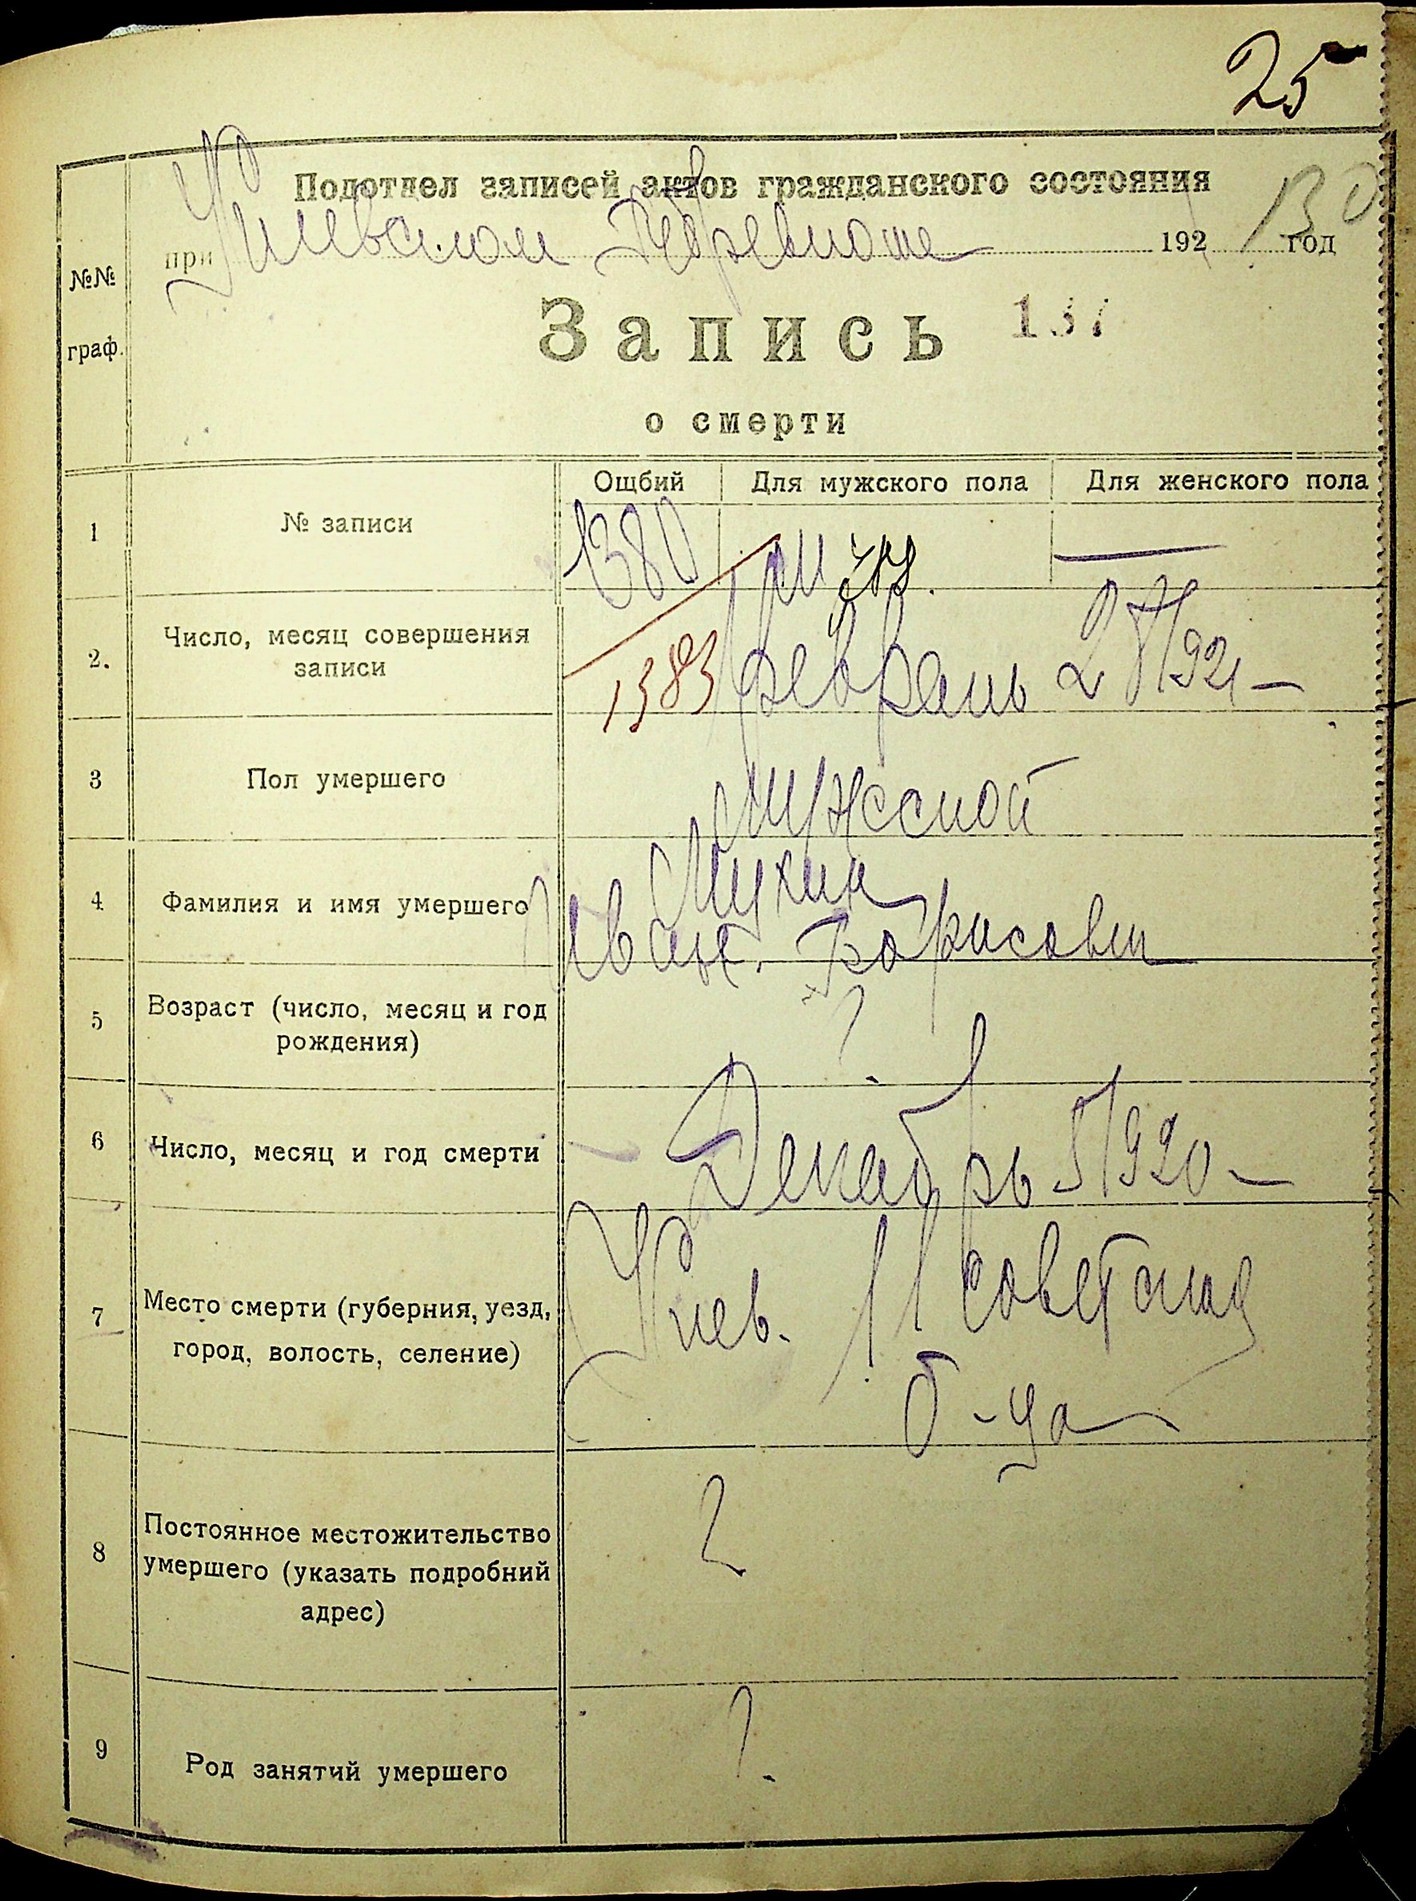 25
Подотдел записей актов гражданского состояния
при Киевском Губревкоме 1921 год
130
№№ граф.
Запись 137
о смерти
Ощбий Для мужского пола Для женского пола
1 № записи 1380 муж. —
1383
2. Число, месяц совершения записи февраль 28/1921 —
3 Пол умершего Мужской
4 Фамилия и имя умершего Мухин
Иван. Борисович
5 Возраст (число, месяц и год рождения) ?
6 Число, месяц и год смерти Декабрь 5/1920 —
7 Место смерти (губерния, уезд, город, волость, селение) Киев. 11 советская
б-ца
8 Постоянное местожительство умершего (указать подробний адрес) ?
9 Род занятий умершего ?